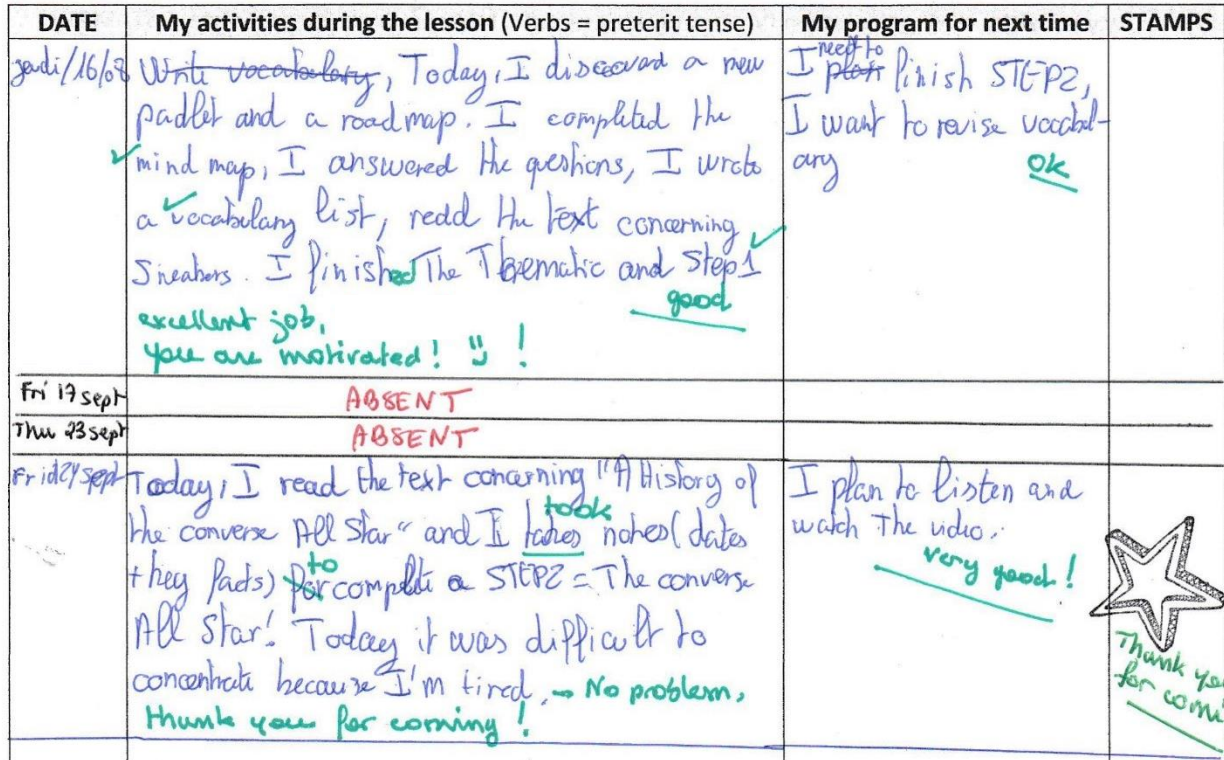 DATE My activities during the lesson (Verbs = preterit tense) My program for next time STAMPS
jeudi/16/09
Write vocabulary, Today, I discoverd a new
padlet and a roadmap. I completed the
mind map, I answered the questions, I wrote
a vocabulary list, read the text concerning
Sneakers. I finished The Thematic and Step 1
good
excellent job,
you are motivated! !
I plan need to finish STEP2,
I want to revise vocabul-
ary
ok
Fri 17 sept ABSENT
Thu 23 sept ABSENT
Frid 24 sept
Today, I read the text concerning "A History of
the converse All Star" and I takes took notes (dates
+ key facts) for to complete a STEP2 = The converse
All Star! Today it was difficult to
concentrate because I'm tired. → No problem,
thank you for coming!
I plan to listen and
watch The video.
very good!
Thank you
for comi